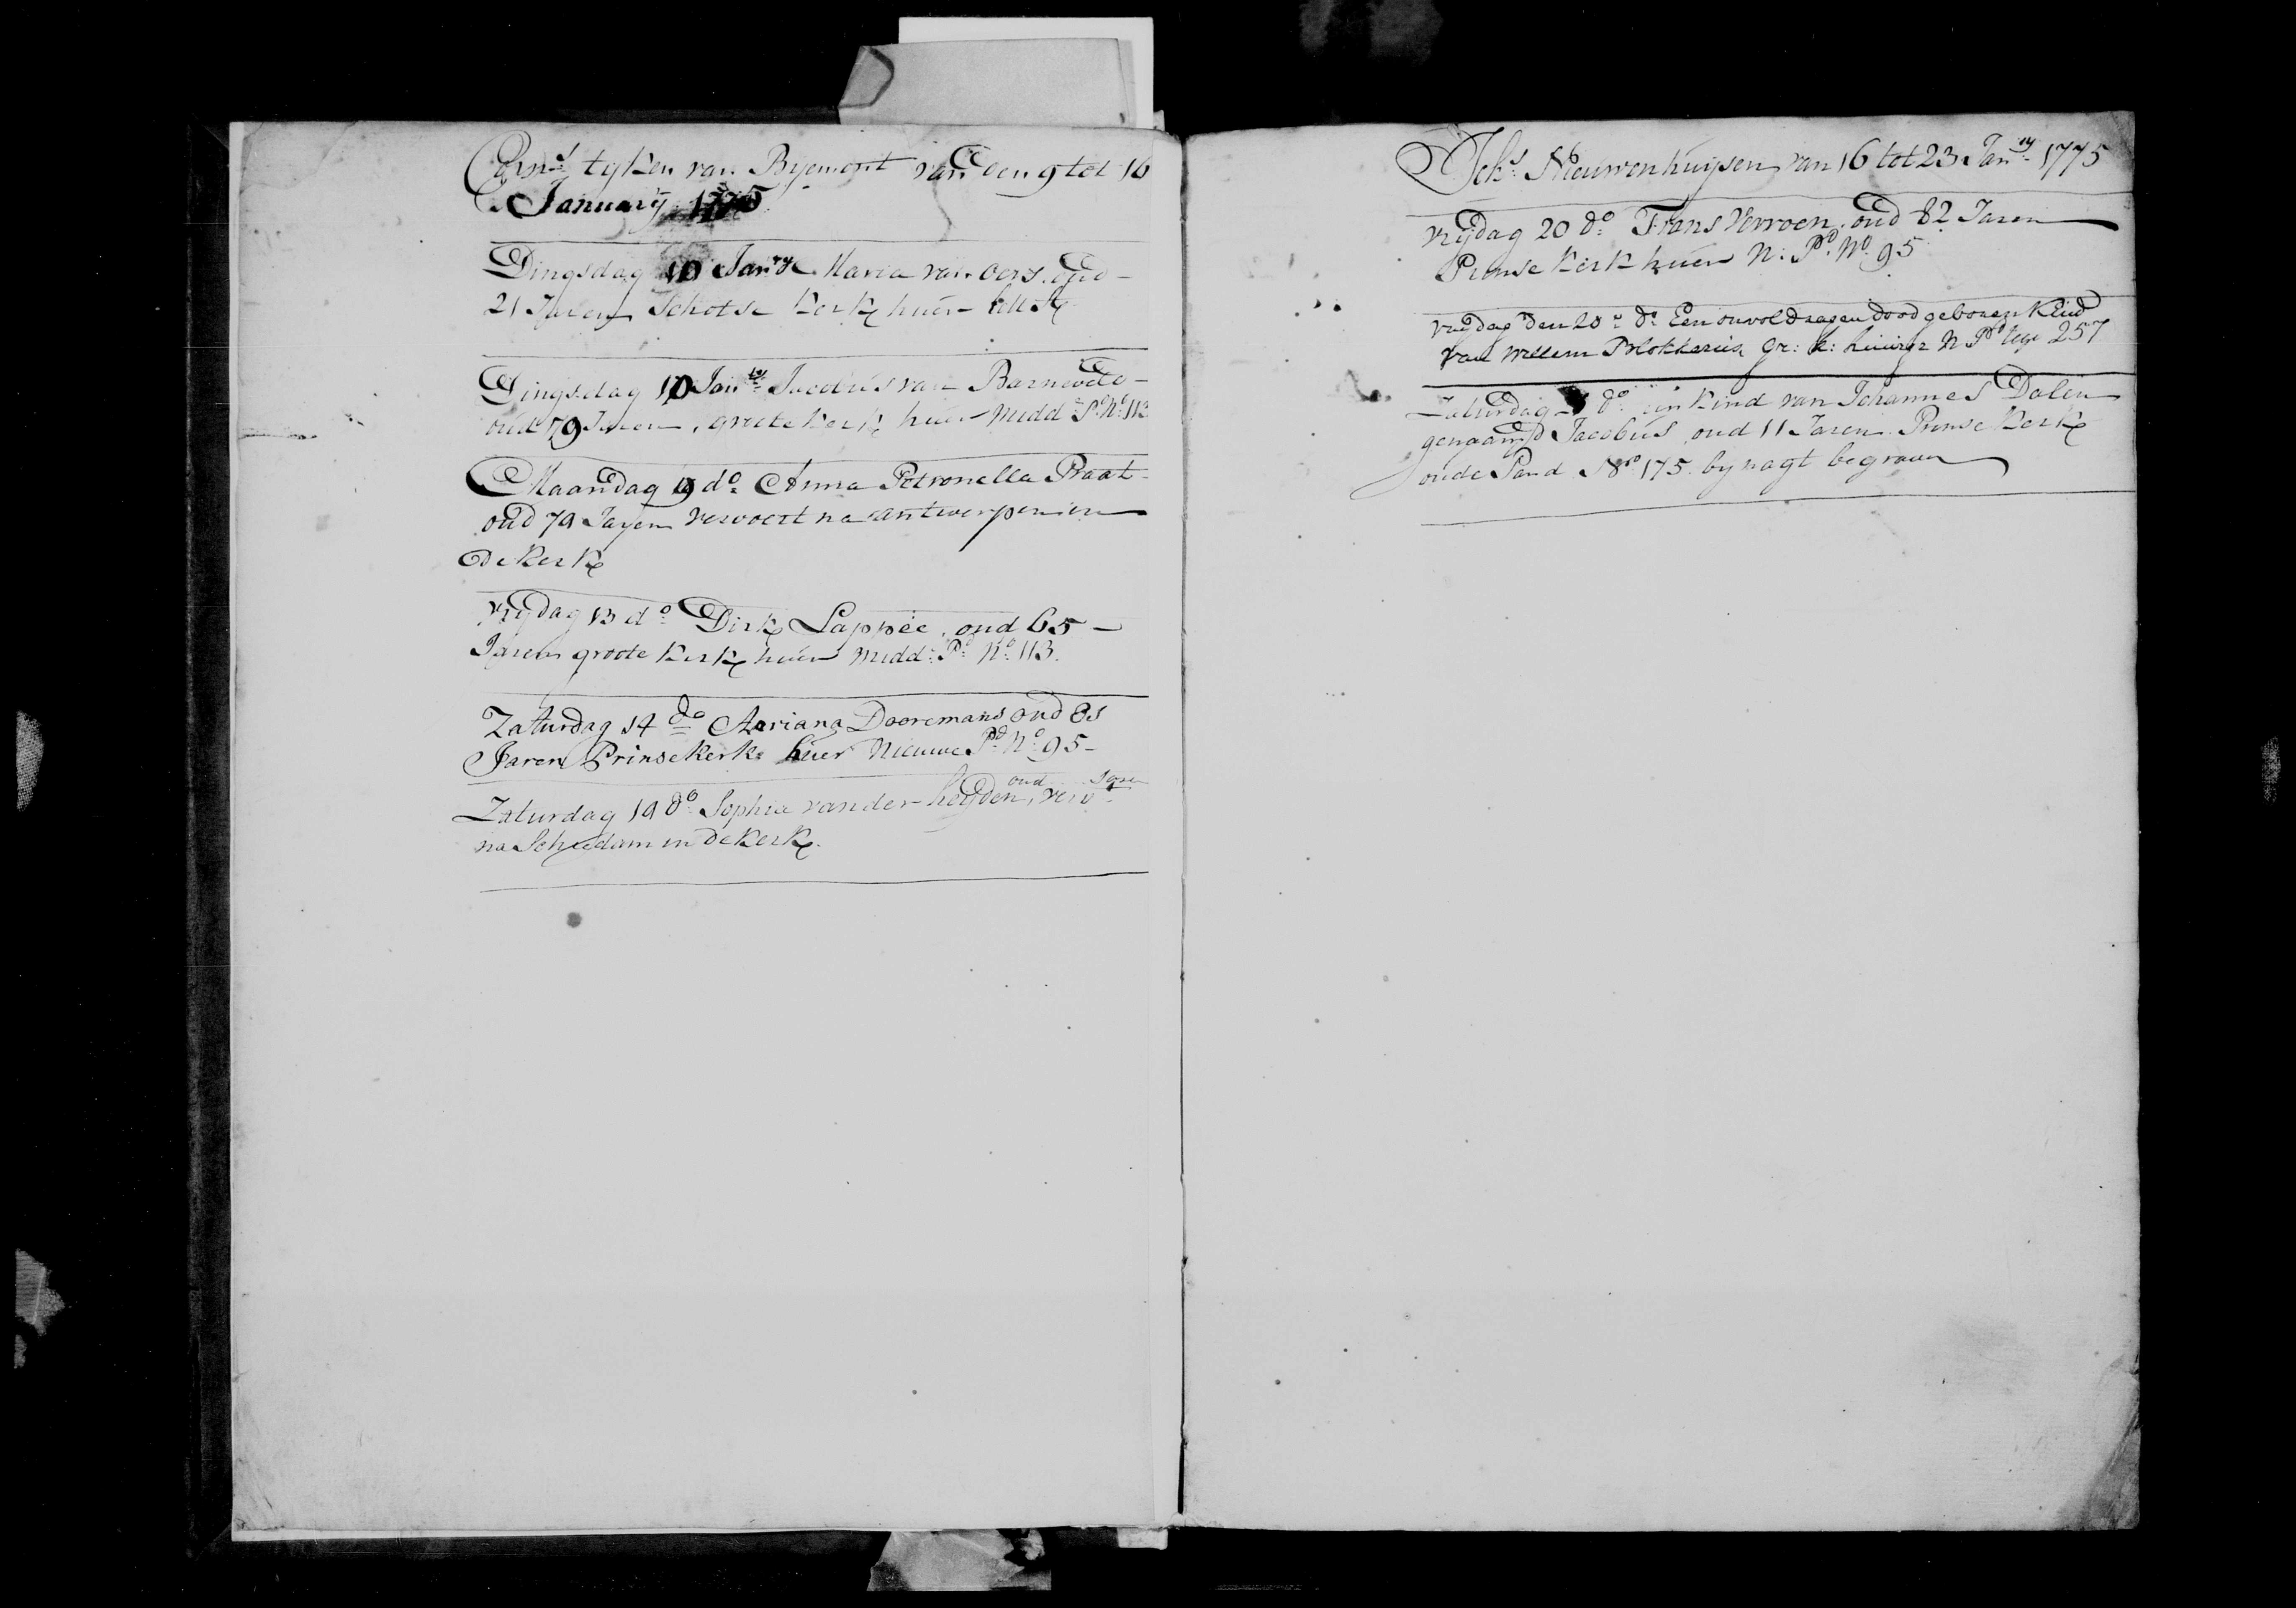 Corns. tyken van Byemont van den 9 tot 16
January 1775
Dingsdag 10 Janry Maria van Oers. oud
21 Jaren Schotse Kerk huur
Dingsdag 10 Janry Jacobus van Barneveld
oud 79 Jaren, groote Kerk huur Midd: Pd. No. 113
Maandag 9 do. Anna Petronella Praat
oud 79 Jaren vervoert na antwerpen in
de Kerk
vrydag 13 do. Dirk Lappée, oud 65
Jaren groote Kerk huur Midd: Pd. No. 113.
Zaturdag 14 do Adriana Dooremans oud 81
Jaren Prinsekerk huer Nieuwe Pd. No. 95
oud Jaren
Zaturdag 14 do. Sophia vander heyden, verv.t
na Schiedam in de Kerk.
Johs. Nieuwenhuysen van 16 tot 23 Janry. 1775
vrydag 20 do. Frans Verroen, oud 82 Jaren
Prinse Kerk huur N: Pd. No 95
vrydag den 20e do. Een onvoldragen dood geboren Kind
van Willem Blokkerus gr: k: huurgr N Pd 257
Zaturdag do. een kind van Johannes Dalen
genaamd Jacobus oud 11 Jaren Prinse Kerk
oude Pand No 175. by nagt begraven